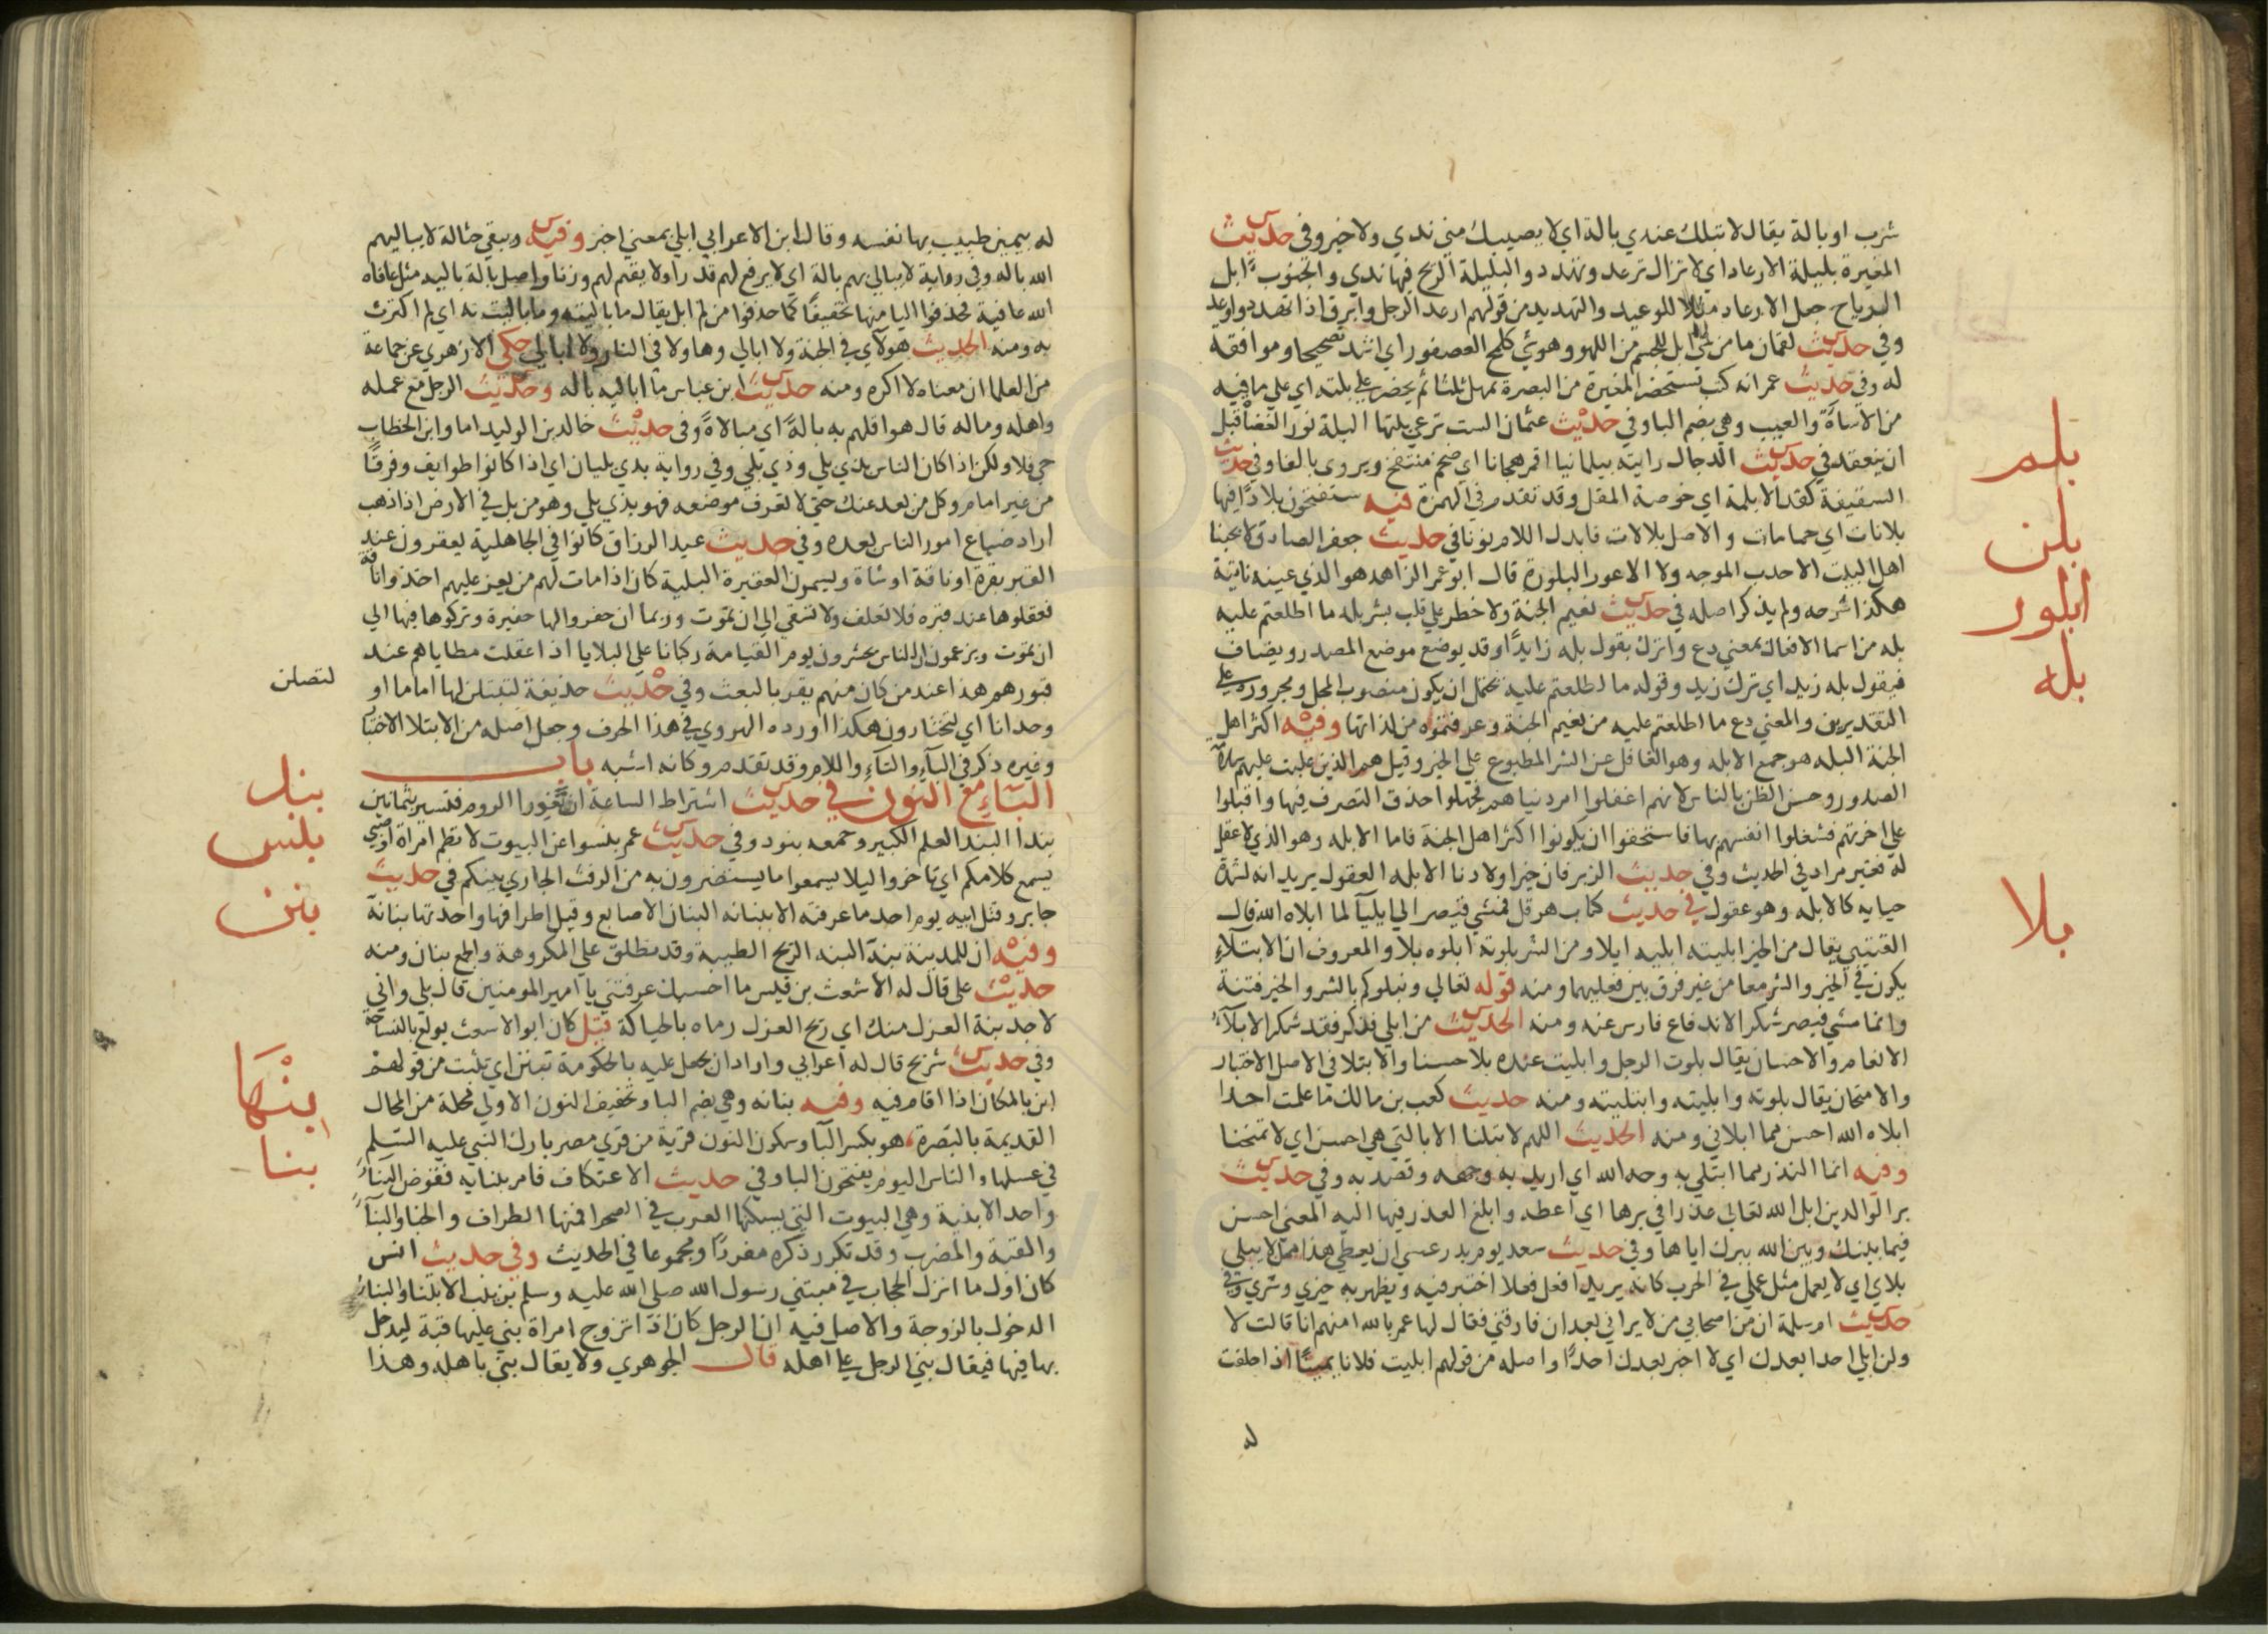 شرب او بالة يقال لا تبلك عندي بالة اي لا يصيبك مني ندي ولا خير وفي حديث
المغيرة بليلة الارعاد اي لا تزال ترعد وتهدد والبليلة الريح فيها ندي والجنوب ابل
الرياح جعل الارعاد مثلا للوعيد والتهديد من قولهم ارعد الرجل وابرق اذا تهدد واوعد
وفي حديث لقمان ما من شي ابل للجسم من اللهو وهو شي كلحم العصفور اي اشد تصحيحا وموافقة
له وفي حديث عمر انه كتب يستحضر المغيرة من البصرة يمهل ثلثا ثم يحضر علي بلته اي علي ما فيه
من الاساءة والعيب وهي بضم البا وفي حديث عثمان الست ترعي بلتها البلة نور العضاه قبل
ان ينعقد في حديث الدجال رايته بيلمانيا اقمر هجانا اي ضخم منتفخ ويروي بالفا وفي حديث
السقيفة كقد الابلمة اي خوصة المقل وقد تقدم في الهمزة فيه ستفتحون بلادا فيها
بلانات اي حمامات والاصل بلالات فابدل اللام نونا في حديث جعفر الصادق لا يحبنا
اهل البيت الاحدب الموجه ولا الاعور البلورة قال ابو عمر الزاهد هو الذي عينه ناتية
هكذا شرحه ولم يذكر اصله في حديث نعيم الجنة ولا خطر علي قلب بشر بله ما اطلعتم عليه
بله من اسما الافعال بمعني دع واترك يقول بله زايدا وقد يوضع موضع المصدر ويضاف
فيقول بله زيد اي ترك زيد وقوله ما اطلعتم عليه يحتمل ان يكون منصوب المحل ومجروره علي
التقديرين والمعني دع ما اطلعتم عليه من نعيم الجنة وعرفتموه من لذاتها وفيه اكثر اهل
الجنة البله هو جمع الابله وهو الغافل عن الشر المطبوع علي الخير وقيل هم الذين غلبت عليهم سلامة
الصدور وحسن الظن بالناس لانهم اغفلوا امر دنياهم فجهلوا حذق التصرف فيها واقبلوا
علي اخرتهم فشغلوا انفسهم بها فاستحقوا ان يكونوا اكثر اهل الجنة فاما الابله وهو الذي لا عقل
له فغير مراد في الحديث وفي حديث الزبرقان خير اولادنا الابله العقول يريد انه لشدة
حيايه كالابله وهو عقول في حديث كتاب هرقل فمشي قيصر الي ايليا لما ابلاه الله قال
القتيبي يقال من الخير ابليته ابليه ابلا ومن الشر بلوته ابلوه بلا والمعروف ان الابتلاء
يكون في الخير والشر معا من غير فرق بين فعليهما ومنه قوله تعالي ونبلوكم بالشر والخير فتنة
وانما مشي قيصر شكرا لاندفاع فارس عنه ومنه الحديث من ابلي فذكر فقد شكر الابلاء
الانعام والاحسان يقال بلوت الرجل وابليت عنده بلا حسنا والابتلا في الاصل الاختبار
والامتحان يقال بلوته وابليته وابتليته ومنه حديث كعب بن مالك ما علمت احدا
ابلاه الله احسن مما ابلاني ومنه الحديث اللهم لا تبلنا الا بالتي هي احسن اي لا تمتحنا
وفيه انما النذر ما ابتلي به وجه الله اي اريد به وجهه وقصد به وفي حديث
بر الوالدين ابل الله تعالي عذرا في برها اي اعطه وابلغ العذر فيها اليه المعني احسن
فيما بينك وبين الله ببرك اياها وفي حديث سعد يوم بدر عسي ان يعطي هذا من لا يبلي
بلاي اي لا يعمل مثل عملي في الحرب كانه يريد افعل فعلا اختبر فيه ويظهر به خيري وشري وفي
حديث ام سلمة ان من اصحابي من لا يراني بعد ان فارقني فقال لها عمر بالله امنهم انا قالت لا
ولن ابلي احدا بعدك اي لا اخبر بعدك احدا واصله من قولهم ابليت فلانا يمينا اذا حلفت
له
بلم
بلن
ابلور
بله
بلا
له بيمين طيبت بها نفسه وقال ابن الاعرابي ابلي بمعني اخبر وفيه وتبقي حثالة لا يباليهم
الله باله وفي رواية لا يبالي بهم بالة اي لا يرفع لهم قدرا ولا يقيم لهم وزنا واصل بالة بالية مثل عافاه
الله عافية فحذفوا اليا منها تخفيفا كما حذفوا من لم ابل يقال ما باليته وما باليت به اي لم اكترث
به ومنه الحديث هولاي في الجنة ولا ابالي وهاولا في النار ولا ابالي حكي الازهري عن جماعة
من العلما ان معناه لا اكره ومنه حديث ابن عباس ما اباليه باله وحديث الرجل مع عمله
واهله وماله قال هو اقلهم به بالة اي مبالاة وفي حديث خالد بن الوليد اما وابن الخطاب
حي فلا ولكن اذا كان الناس بذي بلي وذي بلي وفي رواية بذي بليان اي اذا كانوا طوايف وفرقا
من غير امام وكل من بعد عنك حتي لا تعرف موضعه فهو بذي بلي وهو من بل في الارض اذا ذهب
اراد ضياع امور الناس بعده وفي حديث عبد الرزاق كانوا في الجاهلية يعقرون عند
القبر بقرة او ناقة او شاة ويسمون العقيرة البلية كان اذا مات لهم من يعز عليهم اخذوا ناقة
فعقلوها عند قبره فلا تعلف ولا تسقي الي ان تموت وربما ان حفروا لها حفيرة وتركوها فيها الي
ان تموت ويزعمون ان الناس يحشرون يوم القيامة ركبانا علي البلايا اذا عقلت مطاياهم عند
قبورهم هذا عند من كان منهم يقر بالبعث وفي حديث حذيفة لتبتلن لها اماما او
وحدانا اي لتختارون هكذا اورده الهروي في هذا الحرف وجعل اصله من الابتلا الاختبار
وغيره ذكر في الباء والتاء واللام وقد تقدم وكانه اشبه باب
الباء مع النون في حديث اشتراط الساعة ان تغزوا الروم فتسير بثمانين
بندا البند العلم الكبير وجمعه بنود وفي حديث عمر بنسوا عن البيوت لا تطم امراة او صبي
يسمع كلامكم اي تاخروا ليلا يسمعوا ما يستضرون به من الرفث الجاري بينكم في حديث
جابر وقتل ابيه يوم احد ما عرفته الا ببنانه البنان الاصابع وقيل اطرافها واحدتها بنانة
وفيه ان للمدينة بنة البنه الريح الطيبة وقد تطلق علي المكروهة والجمع بنان ومنه
حديث علي قال له الاشعث بن قيس ما احسبك عرفتني يا امير المومنين قال بلي واني
لاجد بنة الغزل منك اي ريح الغزل رماه بالحياكة قيل كان ابو الاشعث يولع بالنساجة
وفي حديث شريح قال له اعرابي واراد ان يعجل عليه بالحكومة تبنن اي تثبت من قولهم
ابن بالمكان اذا اقام فيه وفيه بنانه وهي بضم البا وتخفيف النون الاولي محلة من المحال
القديمة بالبصرة هو بكسر البا وسكون النون قرية من قري مصر بارك النبي عليه السلم
في عسلها والناس اليوم يفتحون البا وفي حديث الاعتكاف فامر ببنايه فقوض البناء
واحد الابنية وهي البيوت التي يسكنها العرب في الصحرا فمنها الطراف والخبا والبناء
والقبة والمضرب وقد تكرر ذكره مفردا ومجموعا في الحديث وفي حديث انس
كان اول ما انزل الحجاب في مبتني رسول الله صلي الله عليه وسلم بزينب الابتنا والبناء
الدخول بالزوجة والاصل فيه ان الرجل كان اذا تزوج امراة بني عليها قبة ليدخل
بها فيها فيقال بني الرجل علي اهله قال الجوهري ولا يقال بني باهله وهذا
لتصلن
بند
بلنس
بنن
بنها
بنا